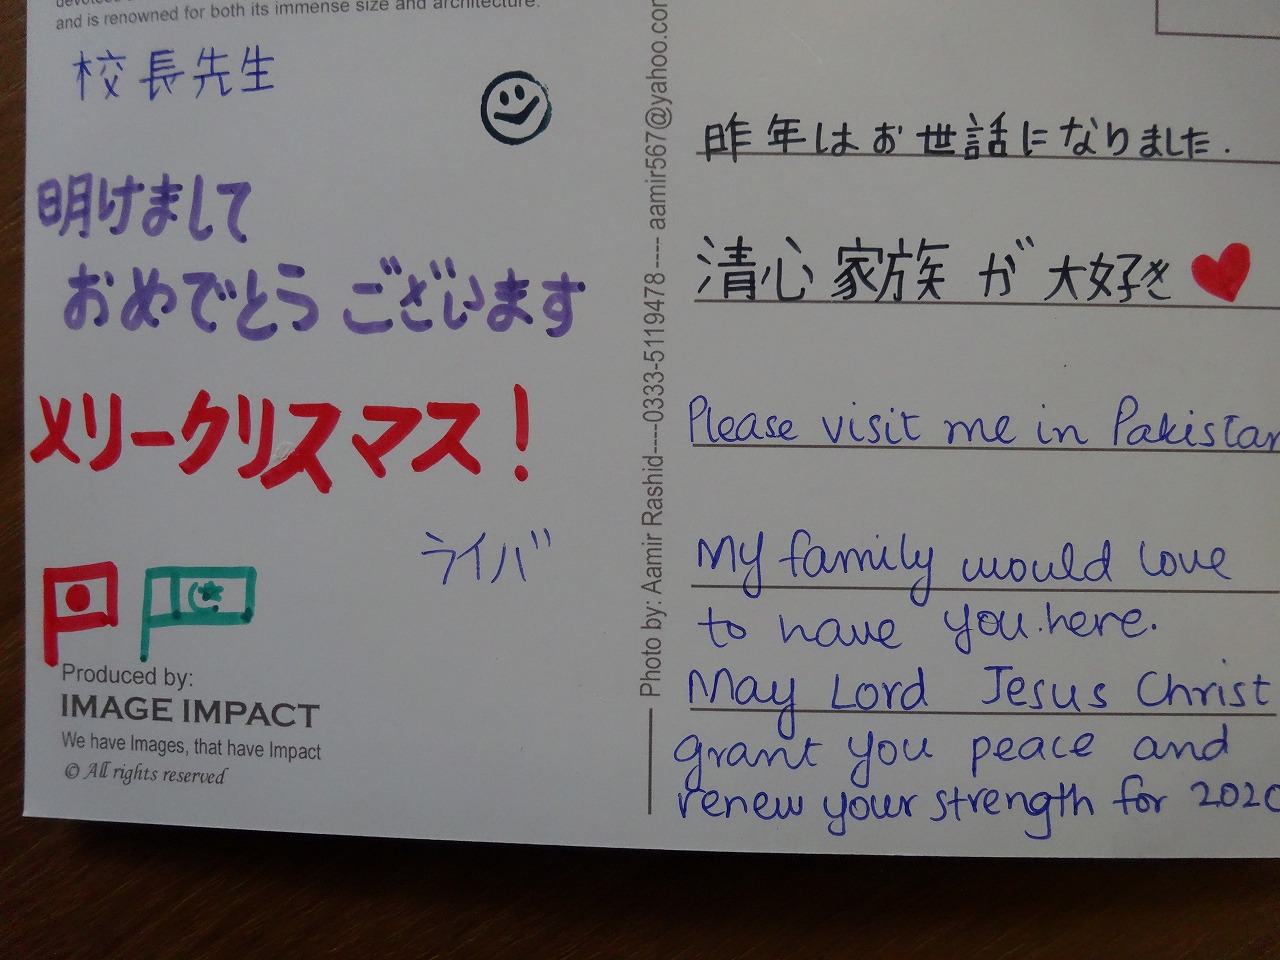 and is renowned for both its immense size and architecture.
校長先生
明けまして
おめでとうございます
メリークリスマス!
ライバ
Produced by:
IMAGE IMPACT
We have Images, that have Impact
© All rights reserved
Photo by: Aamir Rashid----0333-5119478 ---- aamir567@yahoo.com
昨年はお世話になりました.
清心家族が大好き
Please visit me in Pakistan
My family would love
to have you here.
May Lord Jesus Christ
grant you peace and
renew your strength for 2020